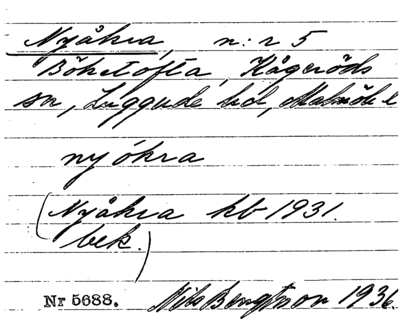 Nyåkra, n:r 5
Böketofta, Kågeröds
sn, Luggude hd, Malmöh l
nyókra
(Nyåkra kb 1931.
bek.)
Nr 5688. Nils Bengtsson 1936.